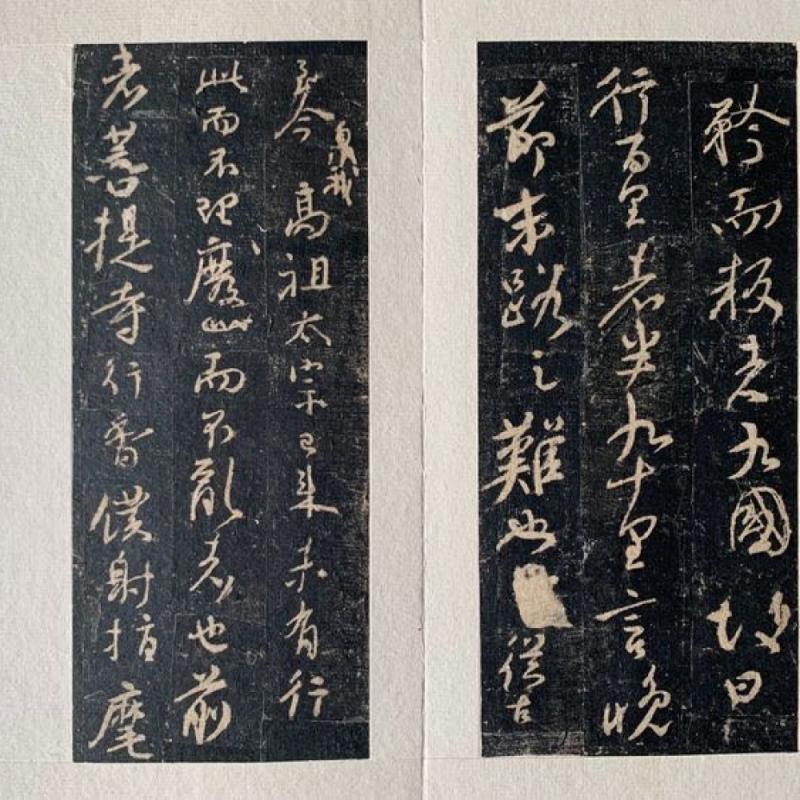 矜而叛者九國故曰
行百里者半九十里言晚
節末路之難也從古
至今臮我高祖太宗已來未有行
此而不理廢而不亂者也前
者菩提寺行香僕射指麾